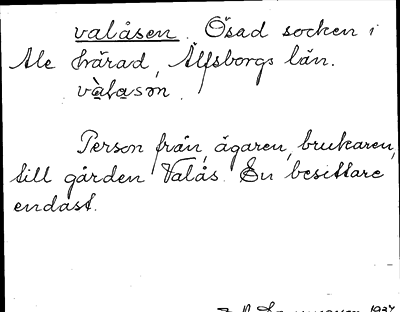 valåsen. Ösad socken i
Ale härad, Älfsborgs län.
vàlasɔn.
Person från, ägaren, brukaren,
till gården Valås. En besittare
endast.
1927